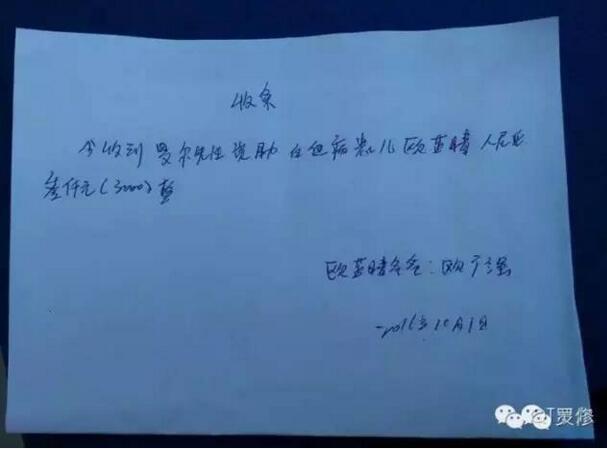 收条
今收到罗尔先生资助白血病患儿欧蓝晴人民币
叁仟元(3000)整
欧蓝晴爸爸:欧广强
2016年10月1日
IT罗修